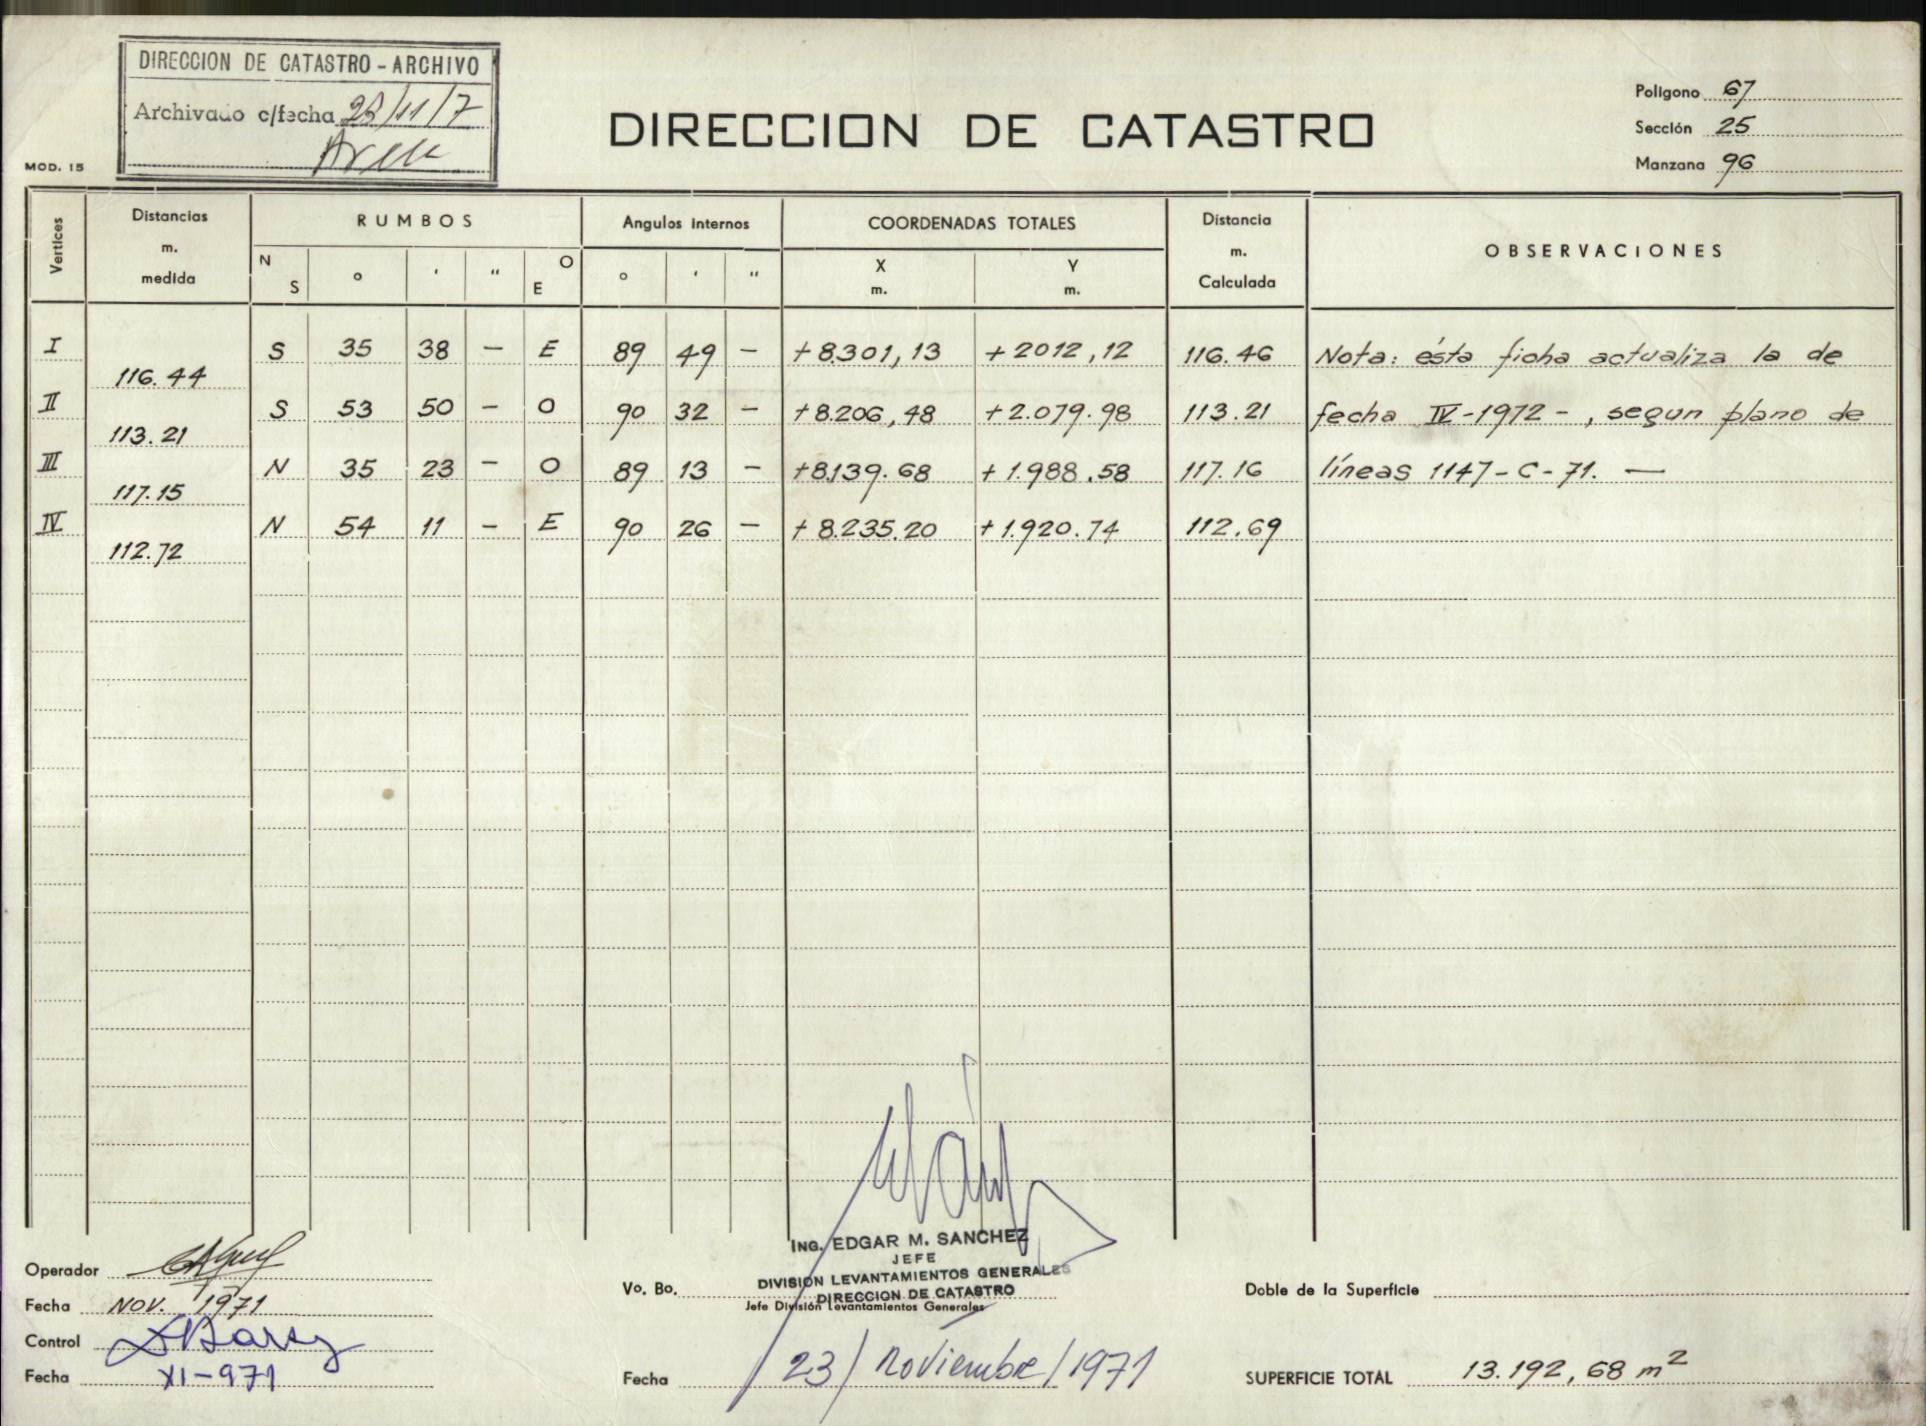 DIRECCION DE CATASTRO - ARCHIVO
Archivado c/fecha 23/11/7
MOD. 15
DIRECCION DE CATASTRO
Poligono 67
Sección 25
Manzana 96
Vertices
Distancias m. medida
RUMBOS
N S ° ' " O E
Angulos internos
° ' "
COORDENADAS TOTALES
X m. Y m.
Distancia m. Calculada
OBSERVACIONES
I S 35 38 — E 89 49 — +8.301,13 +2012,12 116.46 Nota: ésta ficha actualiza la de
116.44
II S 53 50 — O 90 32 — +8.206,48 +2.079.98 113.21 fecha IV-1972-, segun plano de
113.21
III N 35 23 — O 89 13 — +8.139.68 +1.988.58 117.16 líneas 1147-C-71. —
117.15
IV N 54 11 — E 90 26 — +8.235.20 +1.920.74 112.69
112.72
Operador
Fecha NOV. 1971
Control
Fecha XI-971
ING. EDGAR M. SANCHEZ
JEFE
DIVISION LEVANTAMIENTOS GENERALES
DIRECCION DE CATASTRO
Vo. Bo.
Jefe División Levantamientos Generales
Fecha 23/noviembre/1971
Doble de la Superficie
SUPERFICIE TOTAL 13.192,68 m²